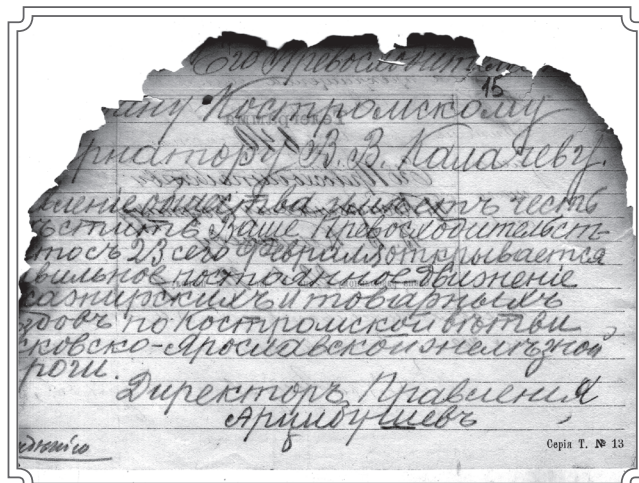 Его Превосходительс
15
ину Костромскому
рнатору В. В. Калачеву.
вление общества имѣетъ честь
ѣстить Ваше Превосходительст
что съ 23 сего Февраля открывается
вильное постоянное движение
сажирскихъ и товарныхъ
здовъ по Костромской вѣтви
сковско-Ярославской желѣзной
роги.
Директоръ Правления
Арцыбушевъ
Серія Т. № 13